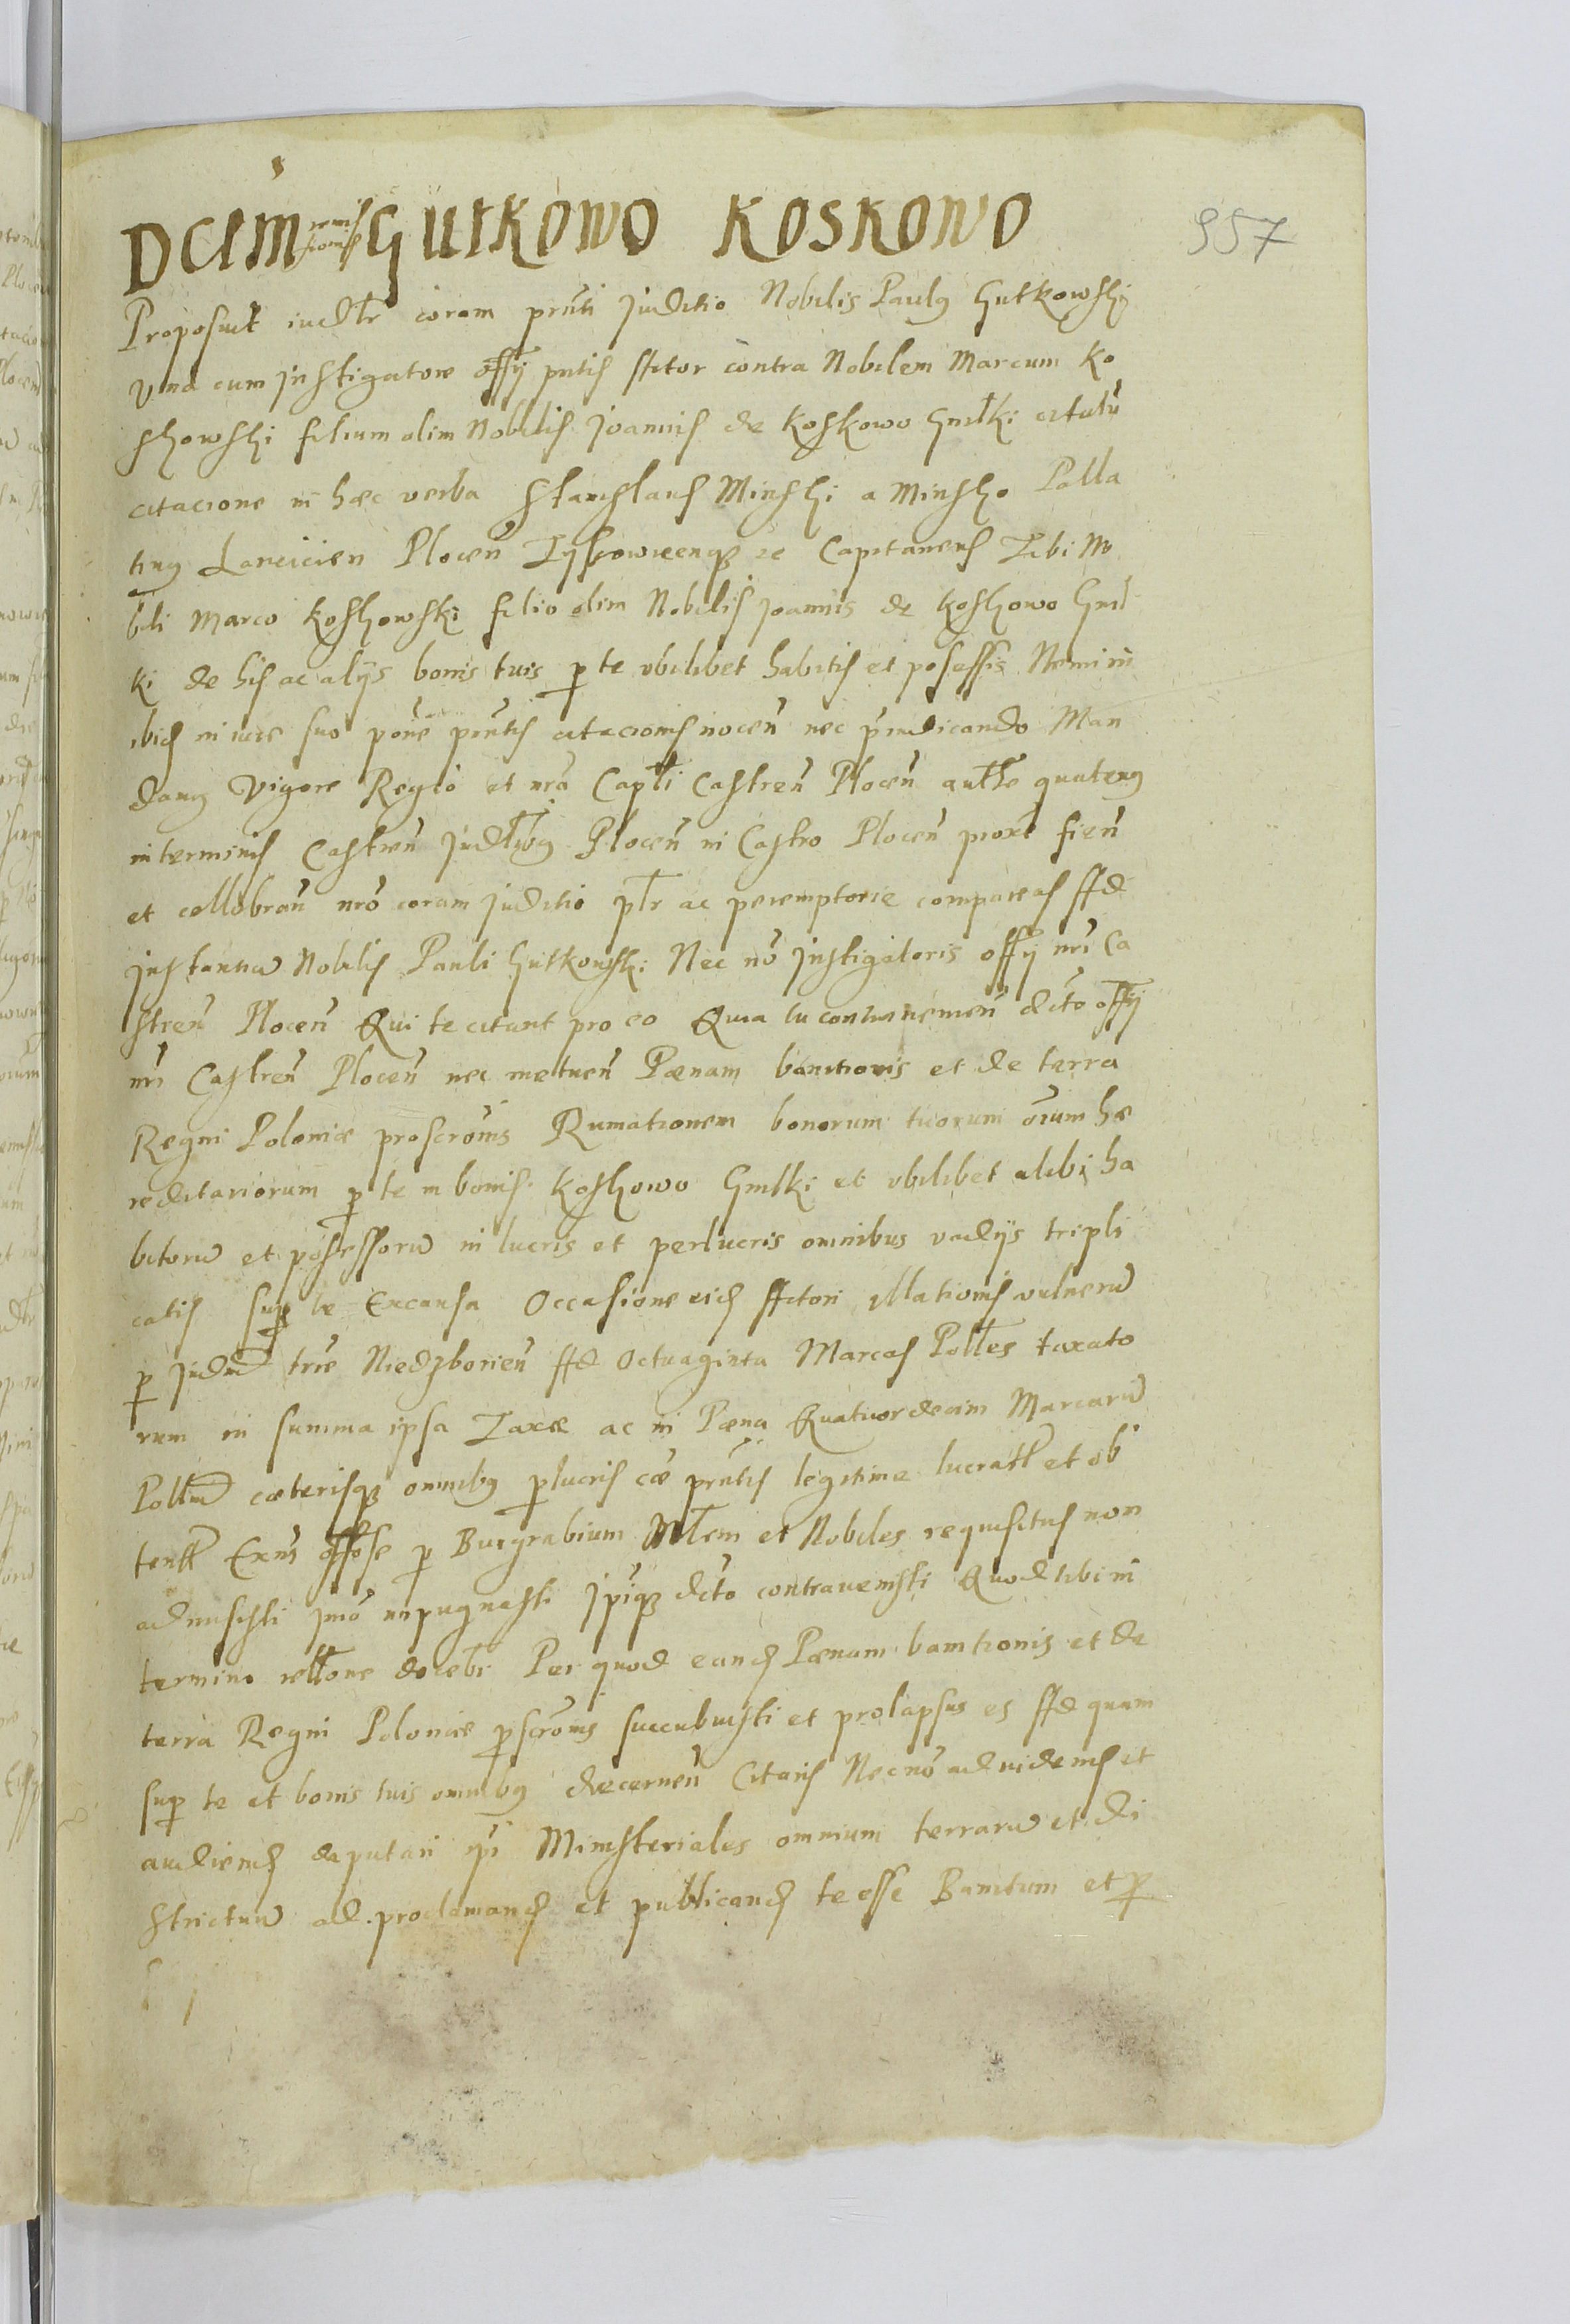 Dctm remissionis Gutkowo Koskowo
957
Proposuit iudlr coram prnti Juditio Nobilis Paulus Gutkowsky
Vna cum Instigatore offy pntis Actor contra Nobilem Marcum Ko
skowski filium olim Nobilis Joannis de Koskowo Gmlki citatu
citacione in haec verba Stanislaus Minski a Minsko Palla
tinus Lancicien Plocen Tyskowicenq; ec Capitaneus Tibi No
bili Marco Koskowski filio olim Nobilis Joannis de Koskowo Gml
ki de his ac alys bonis tuis p te vbilibet habitis et possessis Nemini
ibid in iure suo pone prntis citacionis nocen nec priudicando Man
damus Vigore Regio et nra Captli Castren Plocen autte quatenus
in terminis Castren Judlibus Plocen in Castro Plocen prox fien
et cellebran nro coram Juditio plr ac peremptorie compareas Ad
Instantia Nobilis Pauli Gutkowski Nec no Instigatoris offy nri Ca
stren Plocen Qui te citant pro eo Quia tu contraueniren dcto offy
nri Castren Plocen nec metuen Paenam banitionis et de terra
Regni Poloniae proscronis Rumationem bonorum tuorum oium hae
reditariorum p te in bonis Koskowo Gmlki et vbilibet alibi ha
bitoru et possessoru in lucris et perlucris omnibus vadys tripli
catis sup te Ex causa Occasione eid Actori illationis vulneru
p Judm trre Niedzborien Ad Octuaginta Marcas Polles taxato
rum in summa ipsa Taxae ac in Paena Quatuordecim Marcaru
Pollm caeterisq; omnibus plucris cae prntis legitime lucratt et ob
tentt Exns offose p Burgrabium Nlem et Nobiles requisitus non
admisisti imo repugnasti Ipiq; dcto contrauenisti Quod tibi in
termino rellone docebr Per quod eand Paenam banitionis et de
terra Regni Poloniae pscronis succubuisti et prolapsus es Ad quam
sup te et bonis tuis omnibus decernen Citaris Nec no ad videnm et
audiend deputari ipi Ministeriales omnium terraru et di
strictuu ad proclamand et publicand te esse Banitum et p